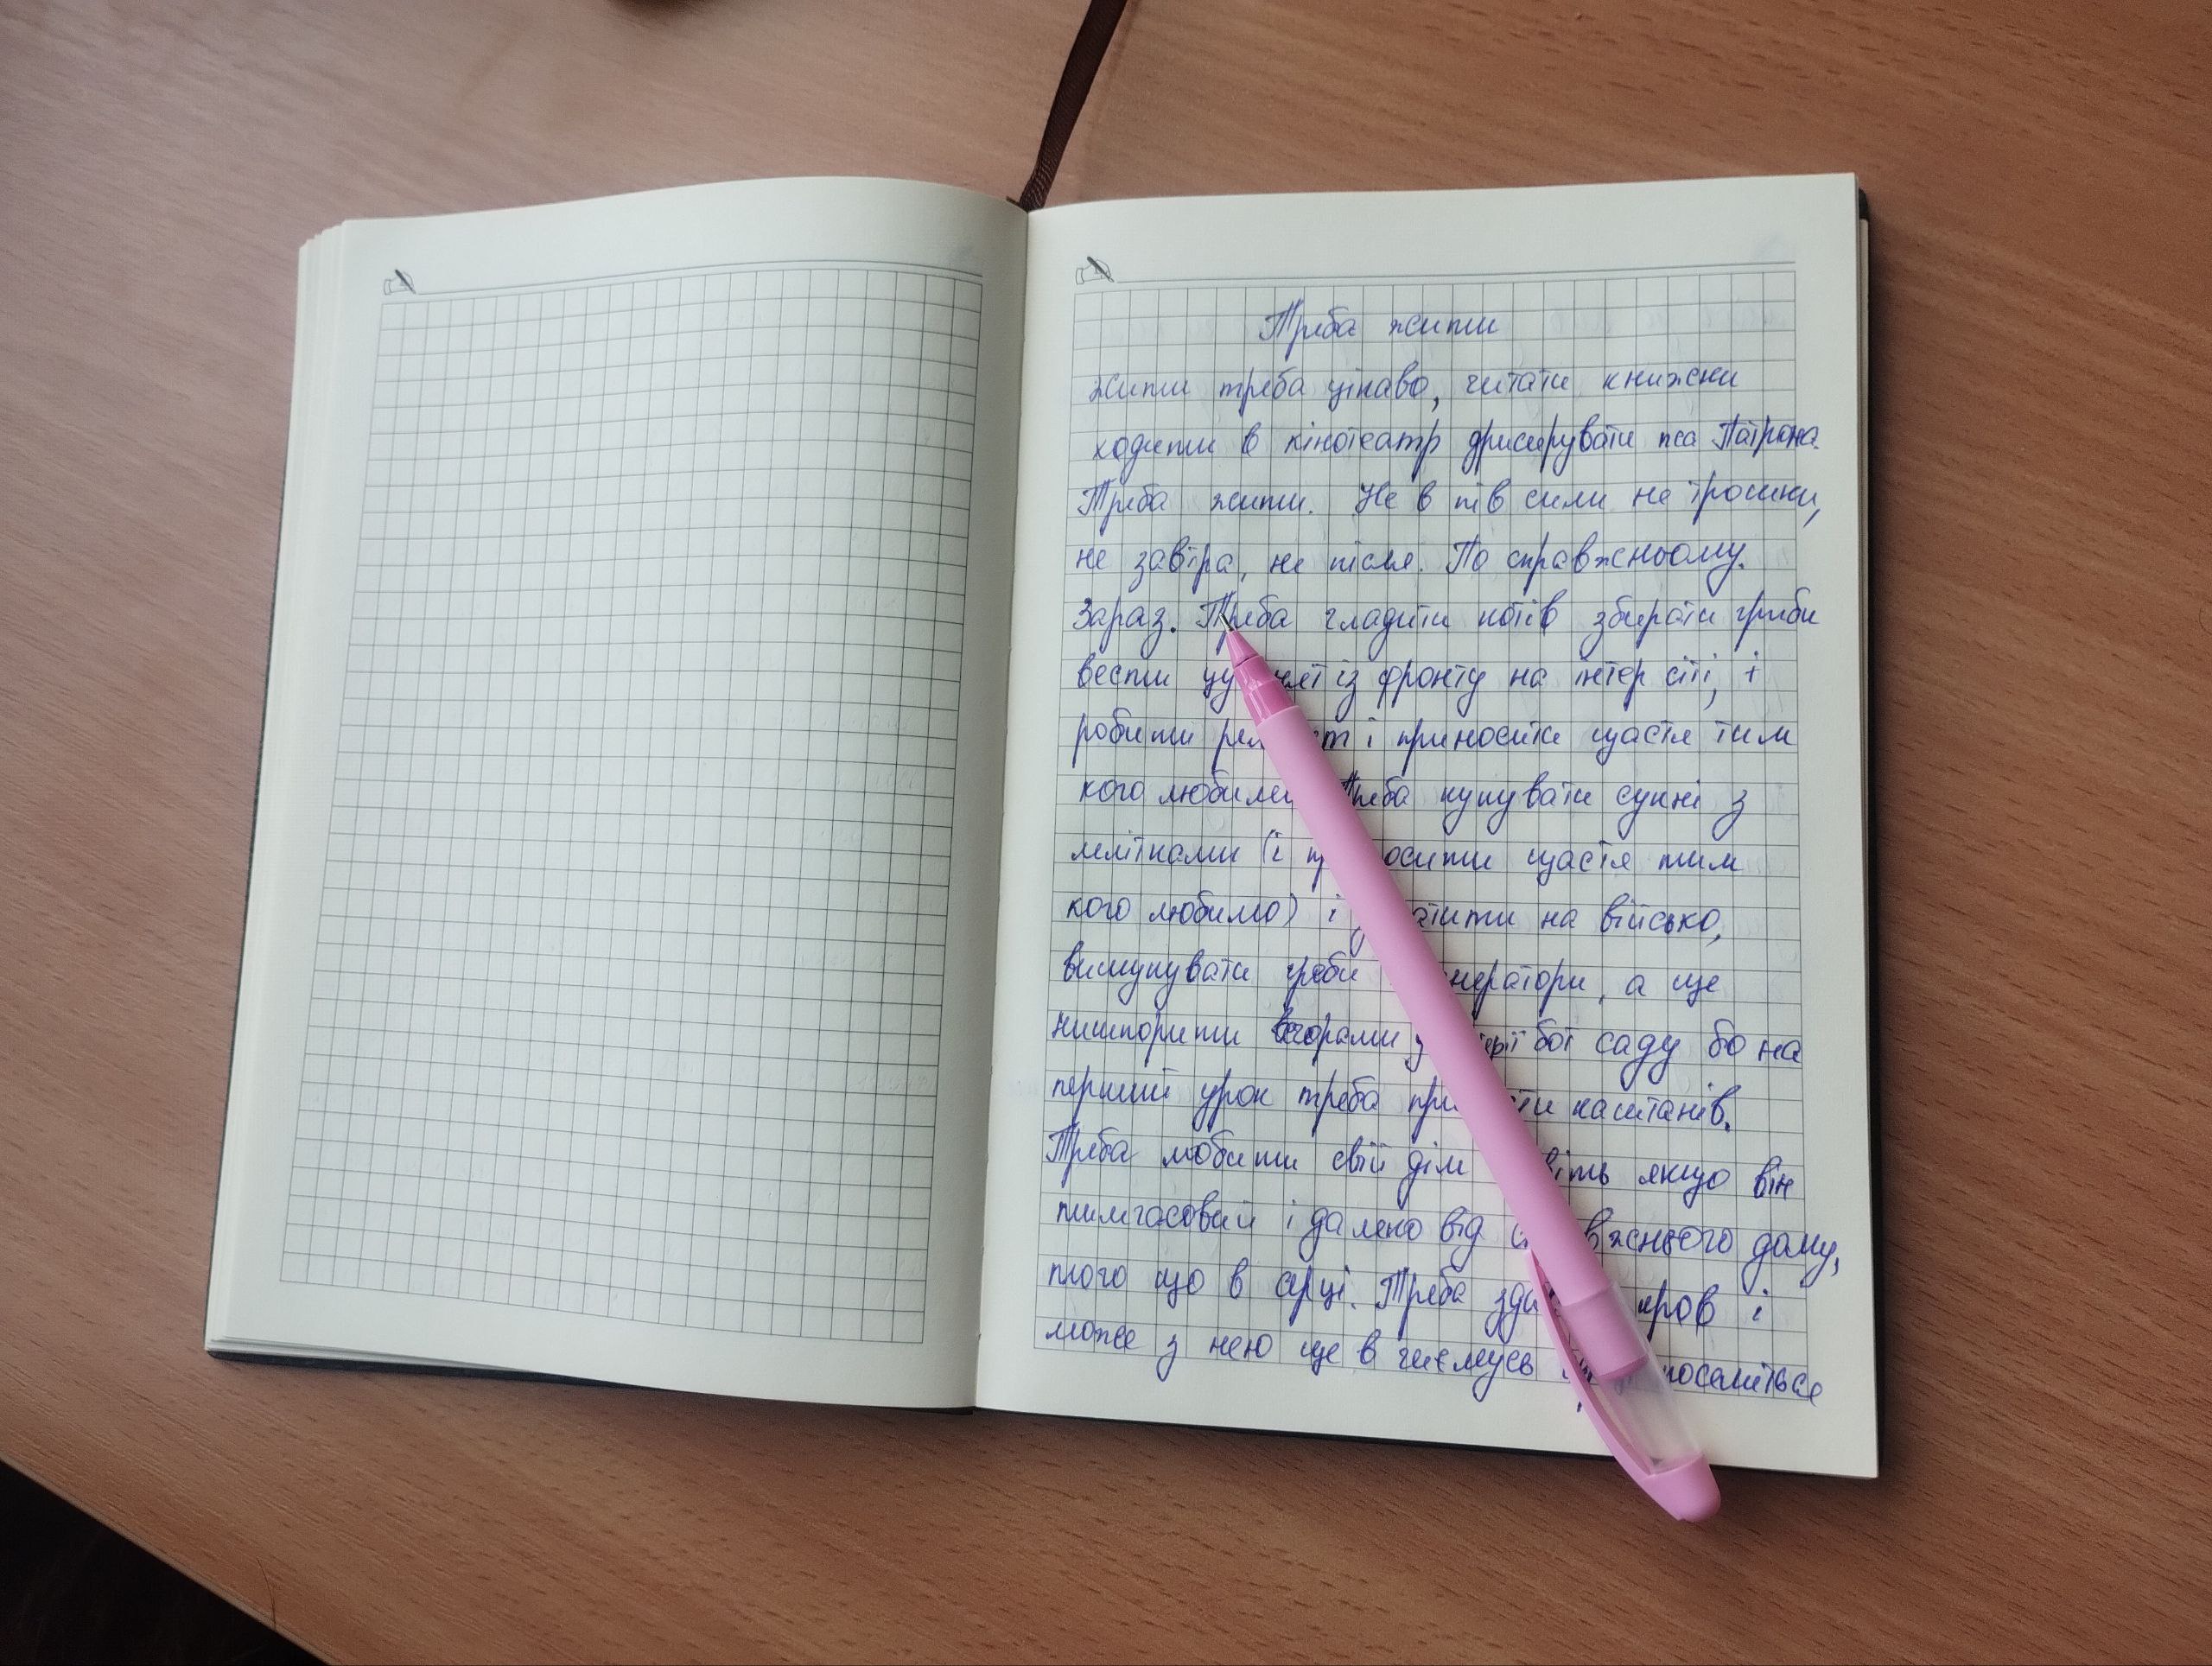 Треба жити
жити треба цікаво, читати книжки
ходити в кінотеатр дрисерувати пса Патрона.
Треба жити. Не в пів сили не трошки,
не завтра, не після. По справжньому.
Зараз. Треба гладити котів збирати гриби
вести із фронту на інтер сіті, і
робити і приносити щастя тим
кого любимо Треба купувати сукні з
(і щастя тим
кого любимо) і на військо,
викупувати а ще
нишпорити вечорами бот саду бо на
перший урок треба каштанів.
Треба любити свій дім якщо він
тимчасовий і далеко від дому,
того що в серці. Треба кров і
може з нею ще в чиємусь поселиться